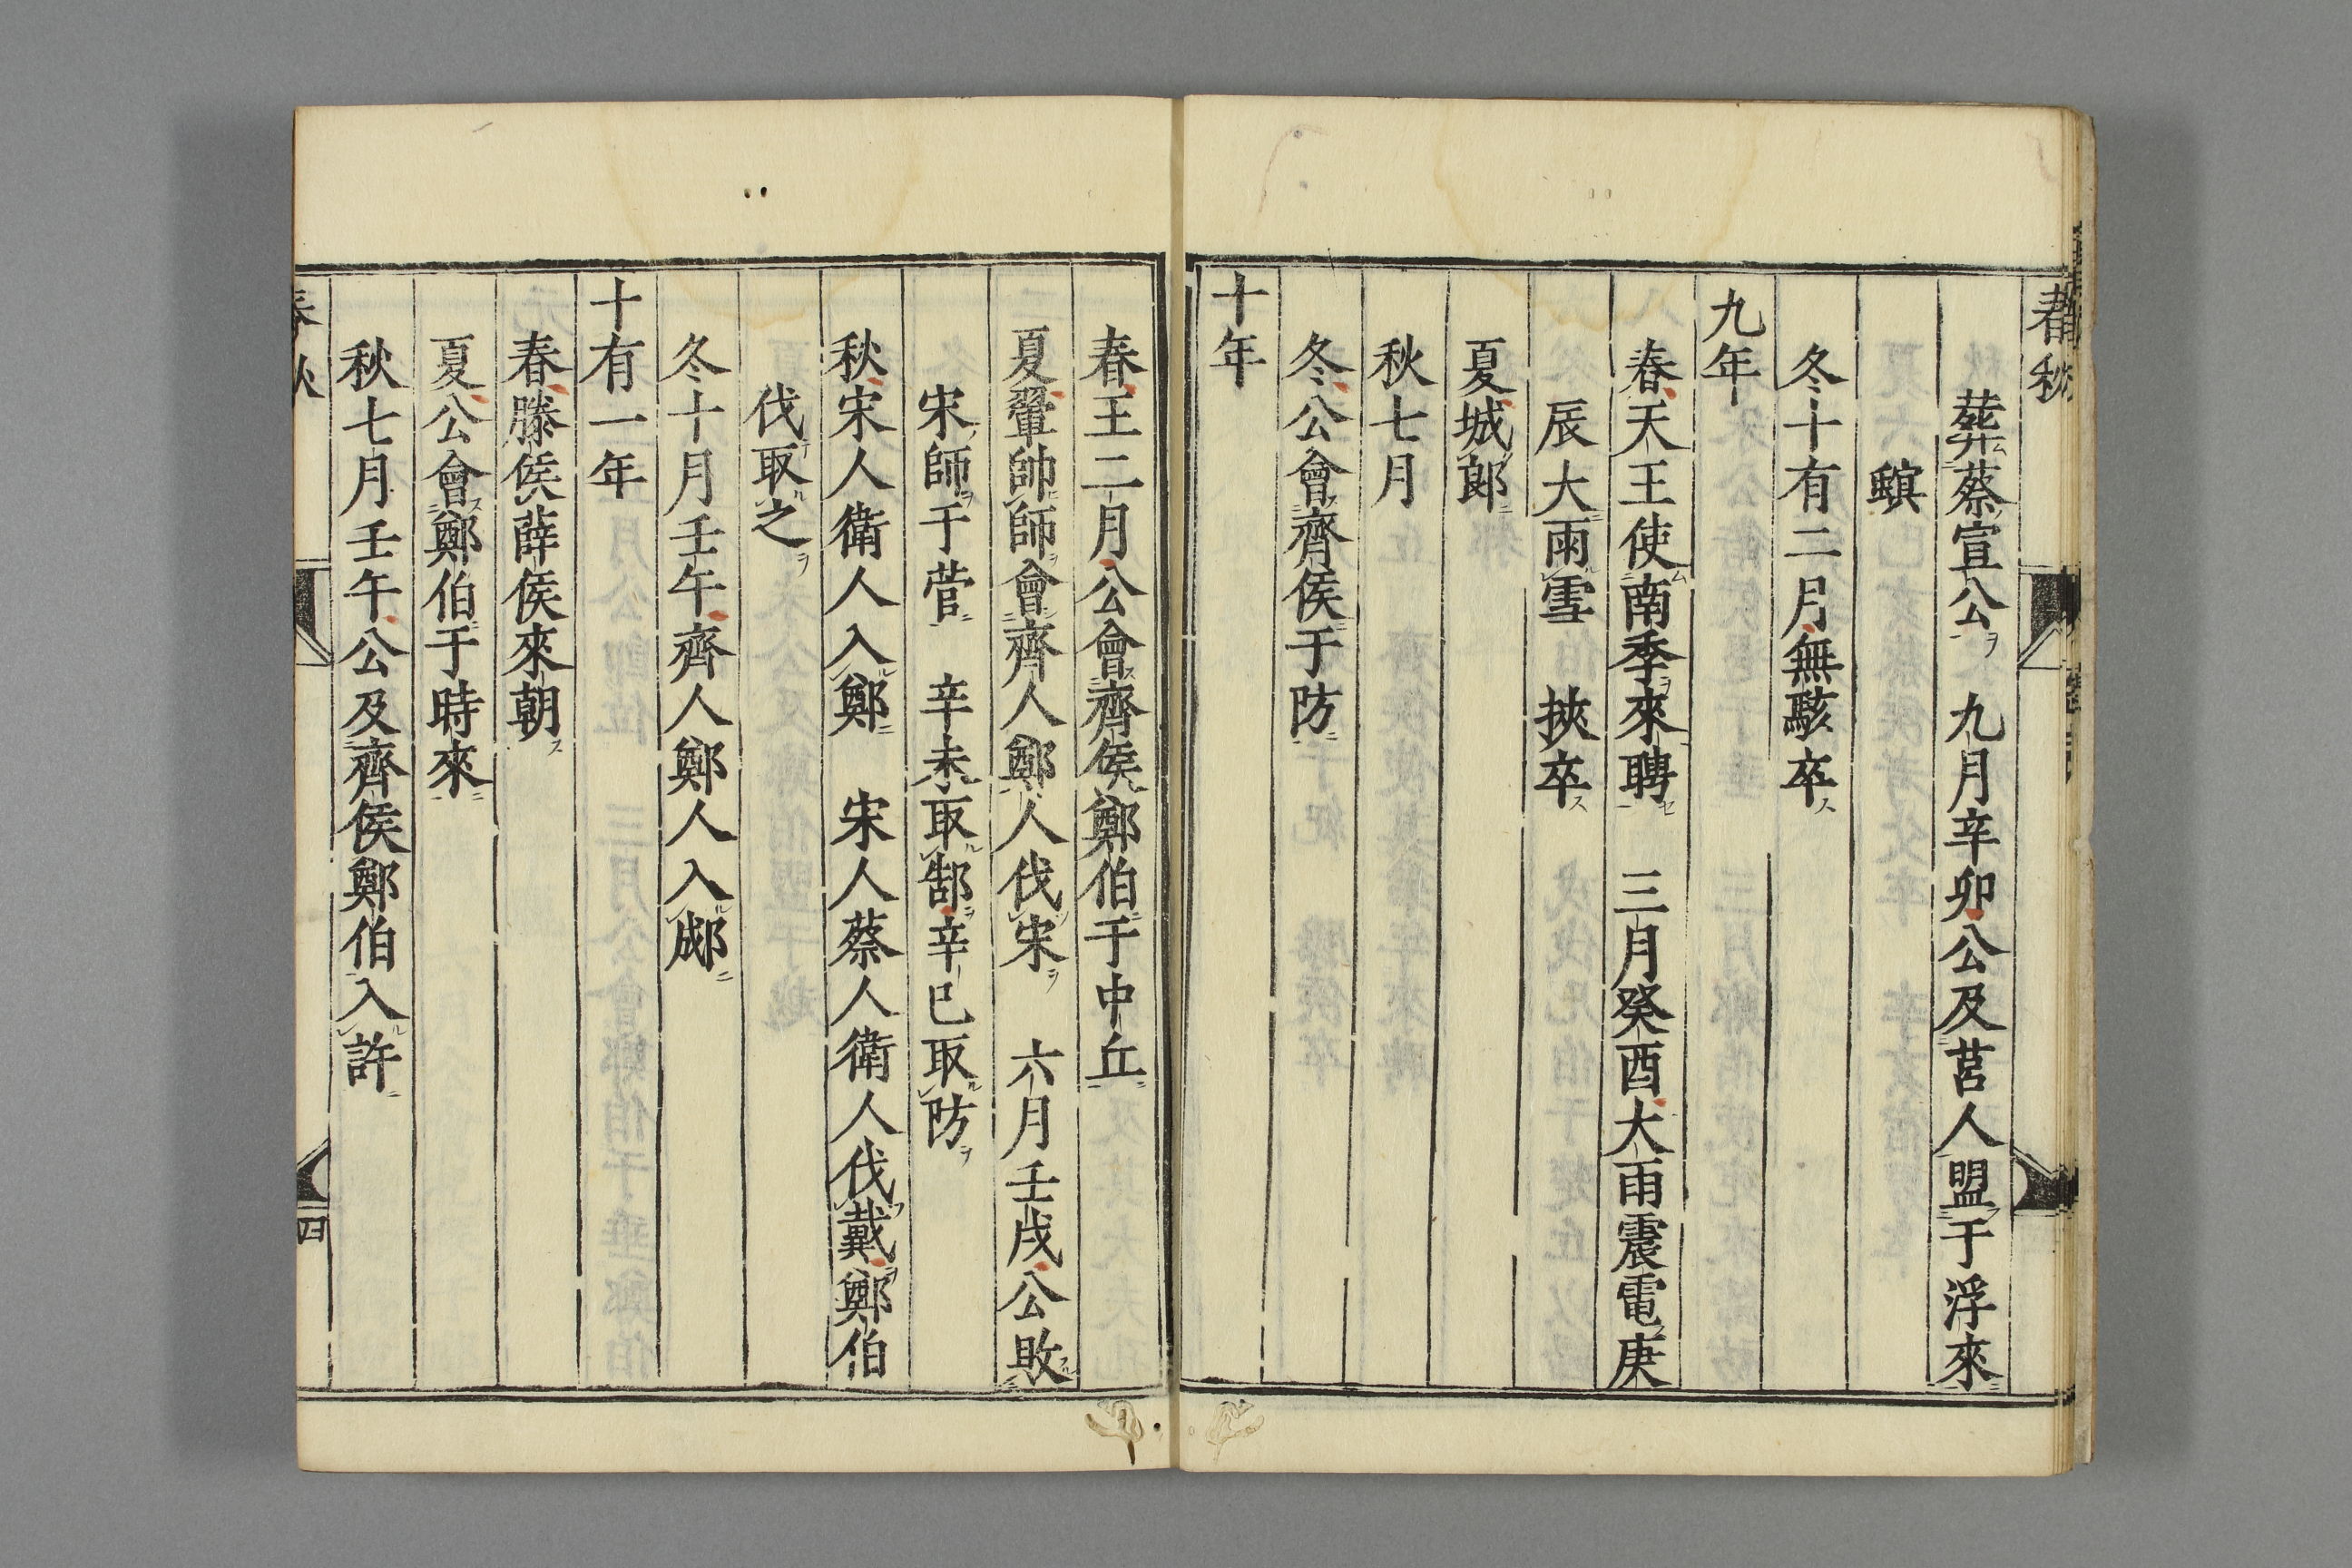 春秋
葬蔡宣公　九月辛卯公及莒人盟于浮來
螟
冬十有二月無駭卒
九年
春天王使南季來聘　三月癸酉大雨震電庚
辰大雨雪　挾卒
夏城郎
秋七月
冬公會齊侯于防
十年
春王二月公會齊侯鄭伯于中丘
夏翬帥師會齊人鄭人伐宋　六月壬戌公敗
宋師于菅　辛未取郜辛巳取防
秋宋人衛人入鄭　宋人蔡人衛人伐戴鄭伯
伐取之
冬十月壬午齊人鄭人入郕
十有一年
春滕侯薛侯來朝
夏公會鄭伯于時來
秋七月壬午公及齊侯鄭伯入許
春秋
四